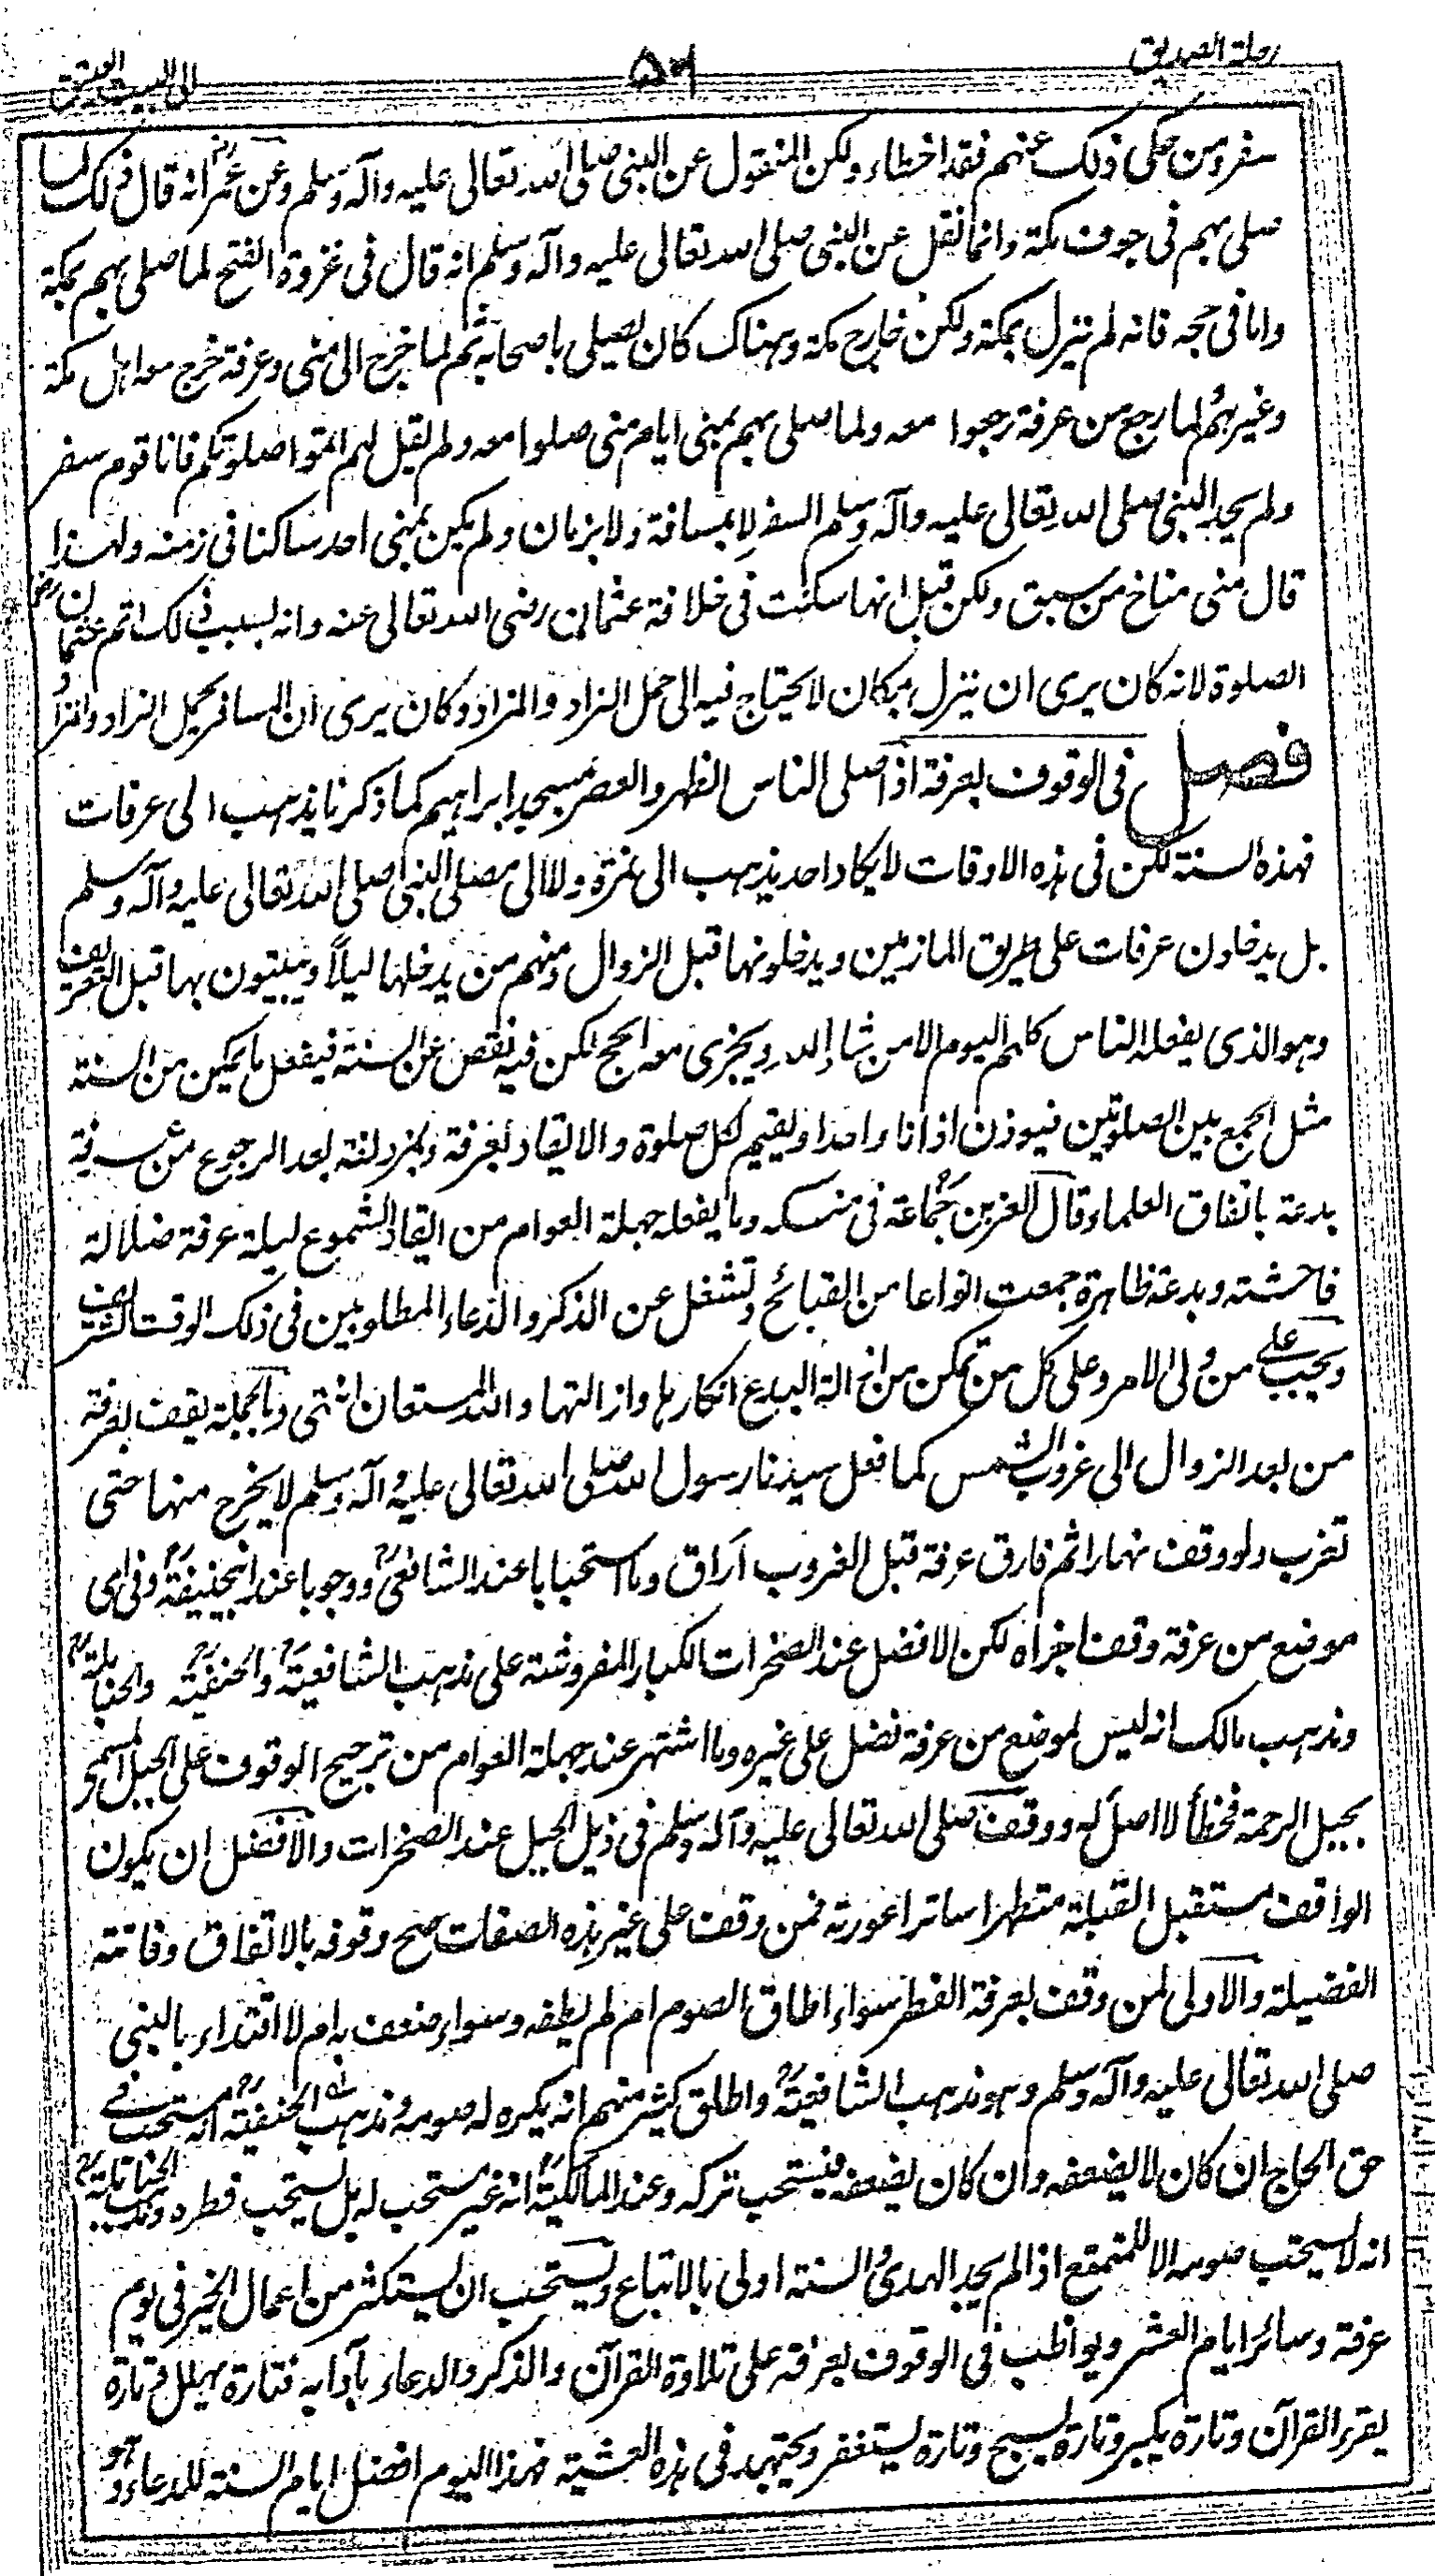 رحلة الصديق
٥٦
الى البيت العتيق
سفر ومن حكى ذلك عنهم فقد اخطاء ولكن المنقول عن النبى صلى الله تعالى عليه وآله وسلم وعن عمر رض انه قال ذلك لما
صلى بهم فى جوف مكة وانما نقل عن النبى صلى الله تعالى عليه وآله وسلم انه قال فى غزوة الفتح لما صلى بهم بمكة
واما فى حجه فانه لم ينزل بمكة ولكن خارج مكة وهناك كان يصلى باصحابه ثم لما خرج الى منى وعرفة خرج معه اهل مكة
وغيرهم ولما رجع من عرفة رجعوا معه ولما صلى بهم بمنى ايام منى صلوا معه ولم يقل لهم اتموا صلوتكم فانا قوم سفر
ولم يحد النبى صلى الله تعالى عليه وآله وسلم السفر لا بمسافة ولا بزمان ولم يكن بمنى احد ساكنا فى زمنه ولهذا
قال منى مناخ من سبق ولكن قيل انها سكنت فى خلافة عثمان رضى الله تعالى عنه وانه بسبب ذلك اتم عثمان رض
الصلوة لانه كان يرى ان ينزل بمكان لا يحتاج فيه الى حمل الزاد والمزاد وكان يرى ان المسافر يحمل الزاد والمزاد
فصل فى الوقوف بعرفة اذا صلى الناس الظهر والعصر بمسجد ابراهيم كما ذكرنا يذهب الى عرفات
فهذه السنة لكن فى هذه الاوقات لا يكاد احد يذهب الى نمرة ولا الى مصلى النبى صلى الله تعالى عليه وآله وسلم
بل يدخلون عرفات على طريق المازمين ويدخلونها قبل الزوال ومنهم من يدخلها ليلاً ويبيتون بها قبل التعريف
وهو الذى يفعله الناس كلهم اليوم الا من شاء الله ويجزى معه الحج لكن فيه نقص عن السنة فيفعل ما يمكن من السنة
مثل الجمع بين الصلوتين فيوذن اذانا واحدا ويقيم لكل صلوة والايقاد بعرفة وبمزدلفة بعد الرجوع من عرفة
بدعة باتفاق العلماء وقال العز بن جماعة فى منسكه وما يفعله جهلة العوام من ايقاد الشموع ليلة عرفة ضلالة
فاحشة وبدعة ظاهرة جمعت انواعا من القبائح وتشغل عن الذكر والدعاء المطلوبين فى ذلك الوقت الشريف
ويجب على من ولى الامر وعلى كل من تمكن من ازالة البدع انكارها وازالتها والله المستعان انتهى وبالجملة يقف بعرفة
من بعد الزوال الى غروب الشمس كما فعل سيدنا رسول الله صلى الله تعالى عليه وآله وسلم لا يخرج منها حتى
تغرب ولو وقف نهارا ثم فارق عرفة قبل الغروب اراق دما استحبابا عند الشافعى رح ووجوبا عند ابيحنيفة رح وفى اى
موضع من عرفة وقف اجزاه لكن الافضل عند الصخرات الكبار المفروشة على مذهب الشافعية رح والحنفية رح والحنابلة رح
ومذهب مالك انه ليس لموضع من عرفة فضل على غيره وما اشتهر عند جهلة العوام من ترجيح الوقوف على الجبل المسمى
بجبل الرحمة فخطأ لا اصل له ووقف صلى الله تعالى عليه وآله وسلم فى ذيل الجبل عند الصخرات والافضل ان يكون
الواقف مستقبل القبلة متطهرا ساترا عورته فمن وقف على غير هذه الصفات صح وقوفه بالاتفاق وفاتته
الفضيلة والاولى لمن وقف بعرفة الفطر سواء اطاق الصوم ام لم يطقه وسواء ضعف به ام لا اقتداء بالنبى
صلى الله تعالى عليه وآله وسلم وهو مذهب الشافعية رح واطلق كثير منهم انه يكره له صومه ومذهب الحنفية رح انه مستحب فى
حق الحاج ان كان لا يضعفه وان كان يضعفه فيستحب تركه وعند المالكية رح انه غير مستحب له بل يستحب فطره ومذهب الحنابلة رح
انه لا يستحب صومه الا للمتمتع اذا لم يجد الهدى والسنة اولى بالاتباع ويستحب ان يستكثر من اعمال الخير فى يوم
عرفة وسائر ايام العشر ويواظب فى الوقوف بعرفة على تلاوة القرآن والذكر والدعاء بآدابه فتارة يهلل وتارة
يقرء القرآن وتارة يكبر وتارة يسبح وتارة يستغفر ويجتهد فى هذه العشية فهذا اليوم افضل ايام السنة للدعاء وهو